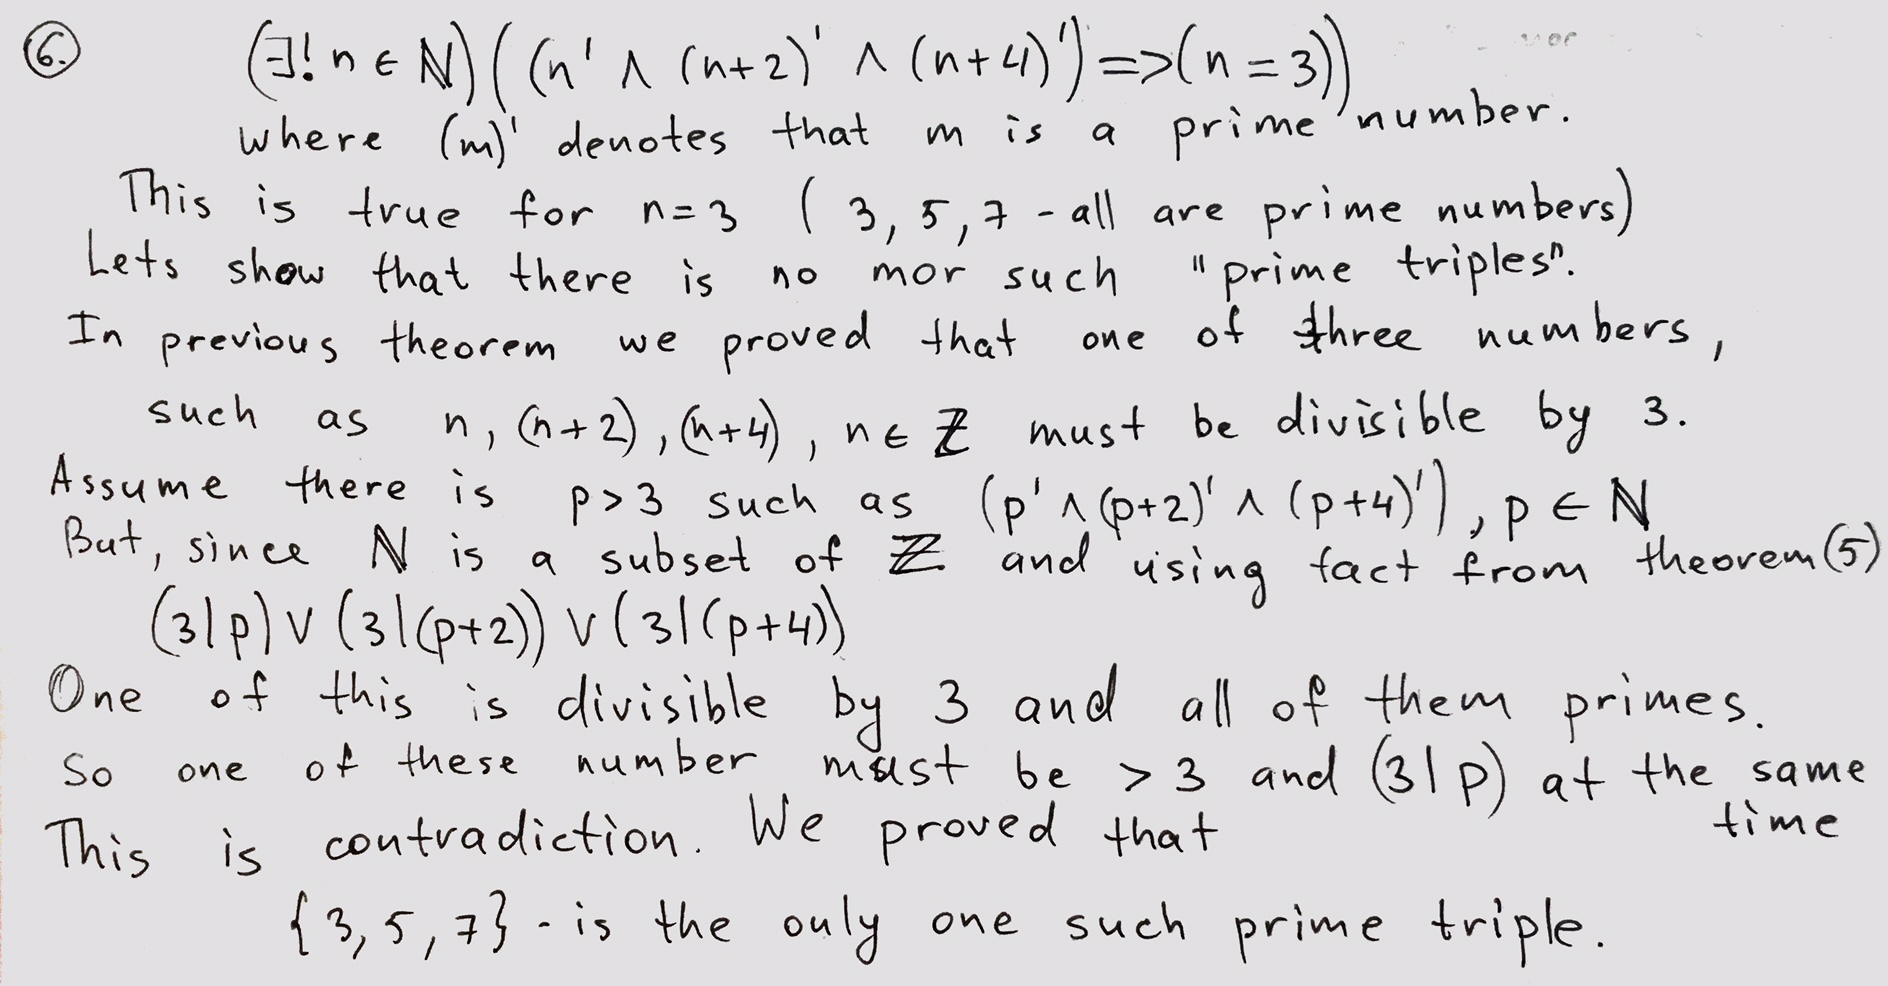 6. (∃! n ∈ ℕ)((n' ∧ (n+2)' ∧ (n+4)') => (n = 3))
where (m)' denotes that m is a prime number.
This is true for n=3 ( 3, 5, 7 - all are prime numbers)
Lets show that there is no mor such "prime triples".
In previous theorem we proved that one of three numbers,
such as n, (n+2), (n+4), n ∈ ℤ must be divisible by 3.
Assume there is p>3 such as (p' ∧ (p+2)' ∧ (p+4)'), p ∈ ℕ
But, since ℕ is a subset of ℤ and using fact from theorem (5)
(3|p) ∨ (3|(p+2)) ∨ (3|(p+4))
One of this is divisible by 3 and all of them primes.
So one of these number must be > 3 and (3|p) at the same
time
This is contradiction. We proved that
{3, 5, 7} - is the only one such prime triple.